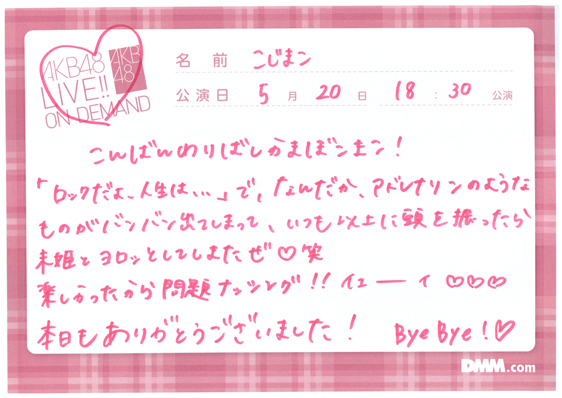 AKB48
LIVE!!
ON DEMAND
AKB
48
名前 こじまン
公演日 5月20日 18:30公演
こんばんわりばしかまぼこまこン!
「ロックだよ、人生は…」で、なんだか、アドレナリンのような
ものがバンバン出てしまって、いつも以上に頭を振ったら
未姫とヨロッとしてしまたぜ♡笑
楽しかったから問題ナッシング!!イェーイ♡♡♡
本日もありがとうございました! Bye Bye!♡
DMM.com